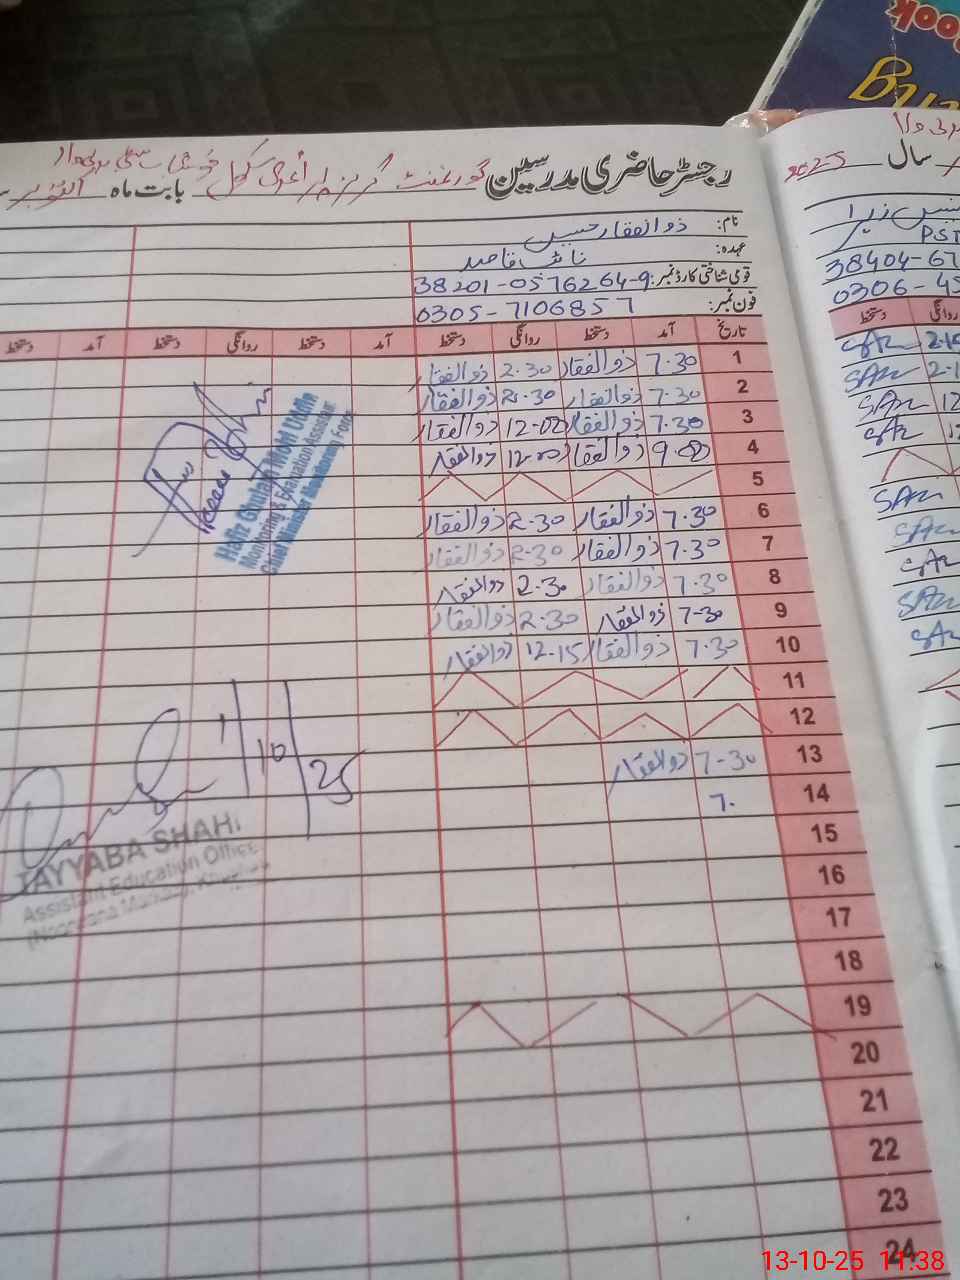 Book
رجسٹر حاضری مدرسین گورنمنٹ گرلز پرائمری سکول بابت ماہ اکتوبر
سال 2025
نام: ذوالفقار حسین
عہدہ: نائب قاصد
قومی شناختی کارڈ نمبر: 38201-0576264-9
فون نمبر: 0305-7106857
PST
38404-67
0306-45
تاریخ آمد دستخط روانگی دستخط آمد دستخط روانگی دستخط آمد دستخط
دستخط روانگی
1 7.30 ذوالفقار 2.30 ذوالفقار
2 7.30 ذوالفقار 2.30 ذوالفقار
3 7.30 ذوالفقار 12-00 ذوالفقار
4 9.00 ذوالفقار 12-00 ذوالفقار
5
6 7.30 ذوالفقار 2.30 ذوالفقار
7 7.30 ذوالفقار 2-30 ذوالفقار
8 7.30 ذوالفقار 2.30 ذوالفقار
9 7-30 ذوالفقار 2.30 ذوالفقار
10 7.30 ذوالفقار 12-15 ذوالفقار
11
12
13 7-30 ذوالفقار
14 7.
15
16
17
18
19
20
21
22
23
24
Hafiz Ghulam Mohi Uddin
Monitoring & Evaluation Assistant
Chief Minister Monitoring Force
1/10/25
TAYYABA SHAH
Assistant Education Office
13-10-25 11:38